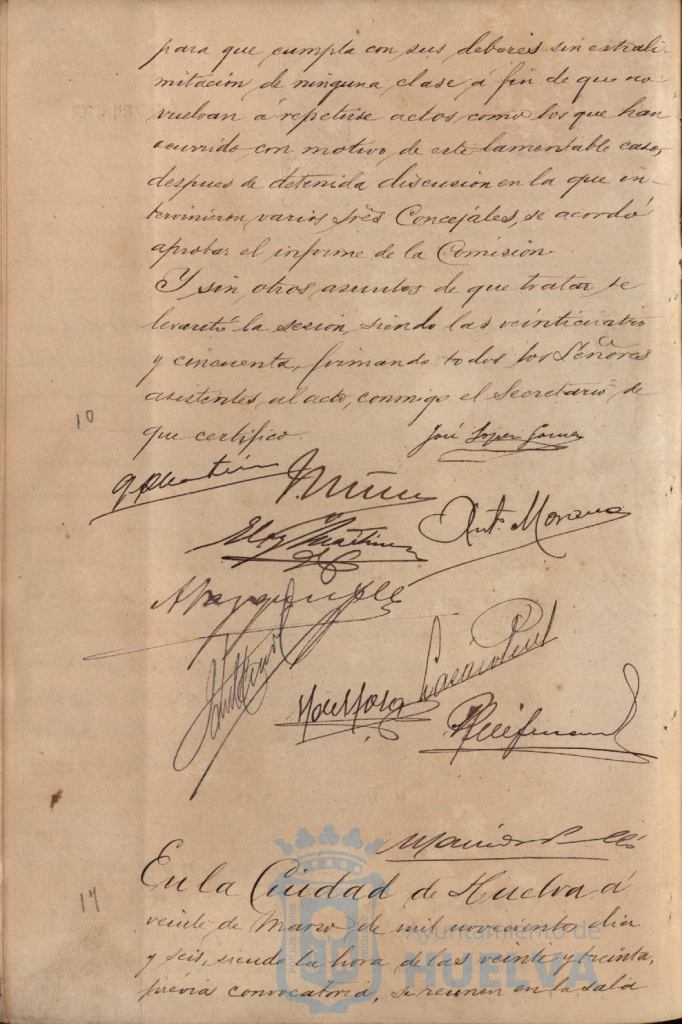 para que cumpla con sus deberes sin estrali-
mitación de ninguna clase á fin de que no
vuelvan á repetirse actos como los que han
ocurrido con motivo de este lamentable caso,
despues de detenida discusion en la que in-
tervinieron varios Sres Concejáles, se acordó
aprobar el informe de la Comision.
Y sin otros asuntos de que tratar, se
levantó la sesion, siendo las veinticuatro
y cincuenta, firmando todos los Señores
asistentes al acto, conmigo el Secretario, de
que certifico.
10
José Lopez Gomez
Ant. Moreno
Eloy Martinez
En la Ciudad de Huelva á
17
veinte de Marzo de mil novecientos diez
y seis, siendo la hora de las veinte y treinta,
prévia convocatoria, se reunen en la sala
Ayuntamiento de
HUELVA